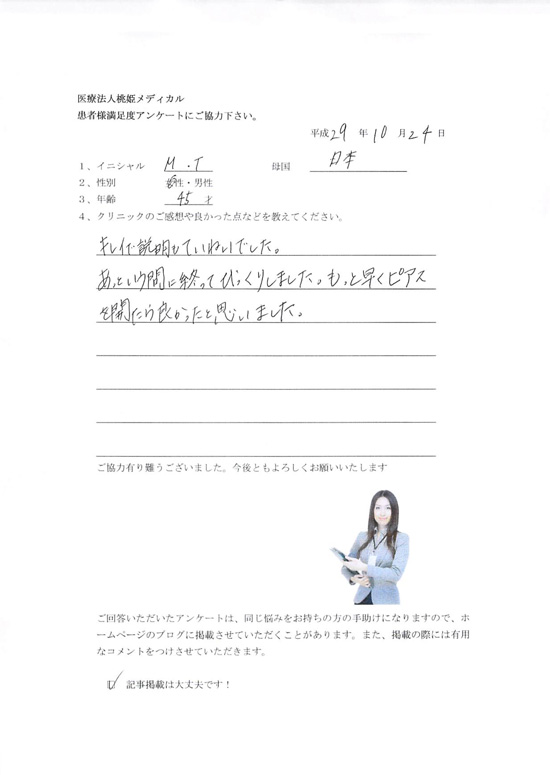 医療法人桃姫メディカル
患者様満足度アンケートにご協力下さい。
平成29年10月24日
1、イニシャル M.T 母国 日本
2、性別 女性・男性
3、年齢 45才
4、クリニックのご感想や良かった点などを教えてください。
キレイで説明もていねいでした。
あっという間に終ってびっくりしました。もっと早くピアス
を開たら良かったと思いました。
ご協力有り難うございました。今後ともよろしくお願いいたします
ご回答いただいたアンケートは、同じ悩みをお持ちの方の手助けになりますので、ホ
ームページのブログに掲載させていただくことがあります。また、掲載の際には有用
なコメントをつけさせていただきます。
記事掲載は大丈夫です!